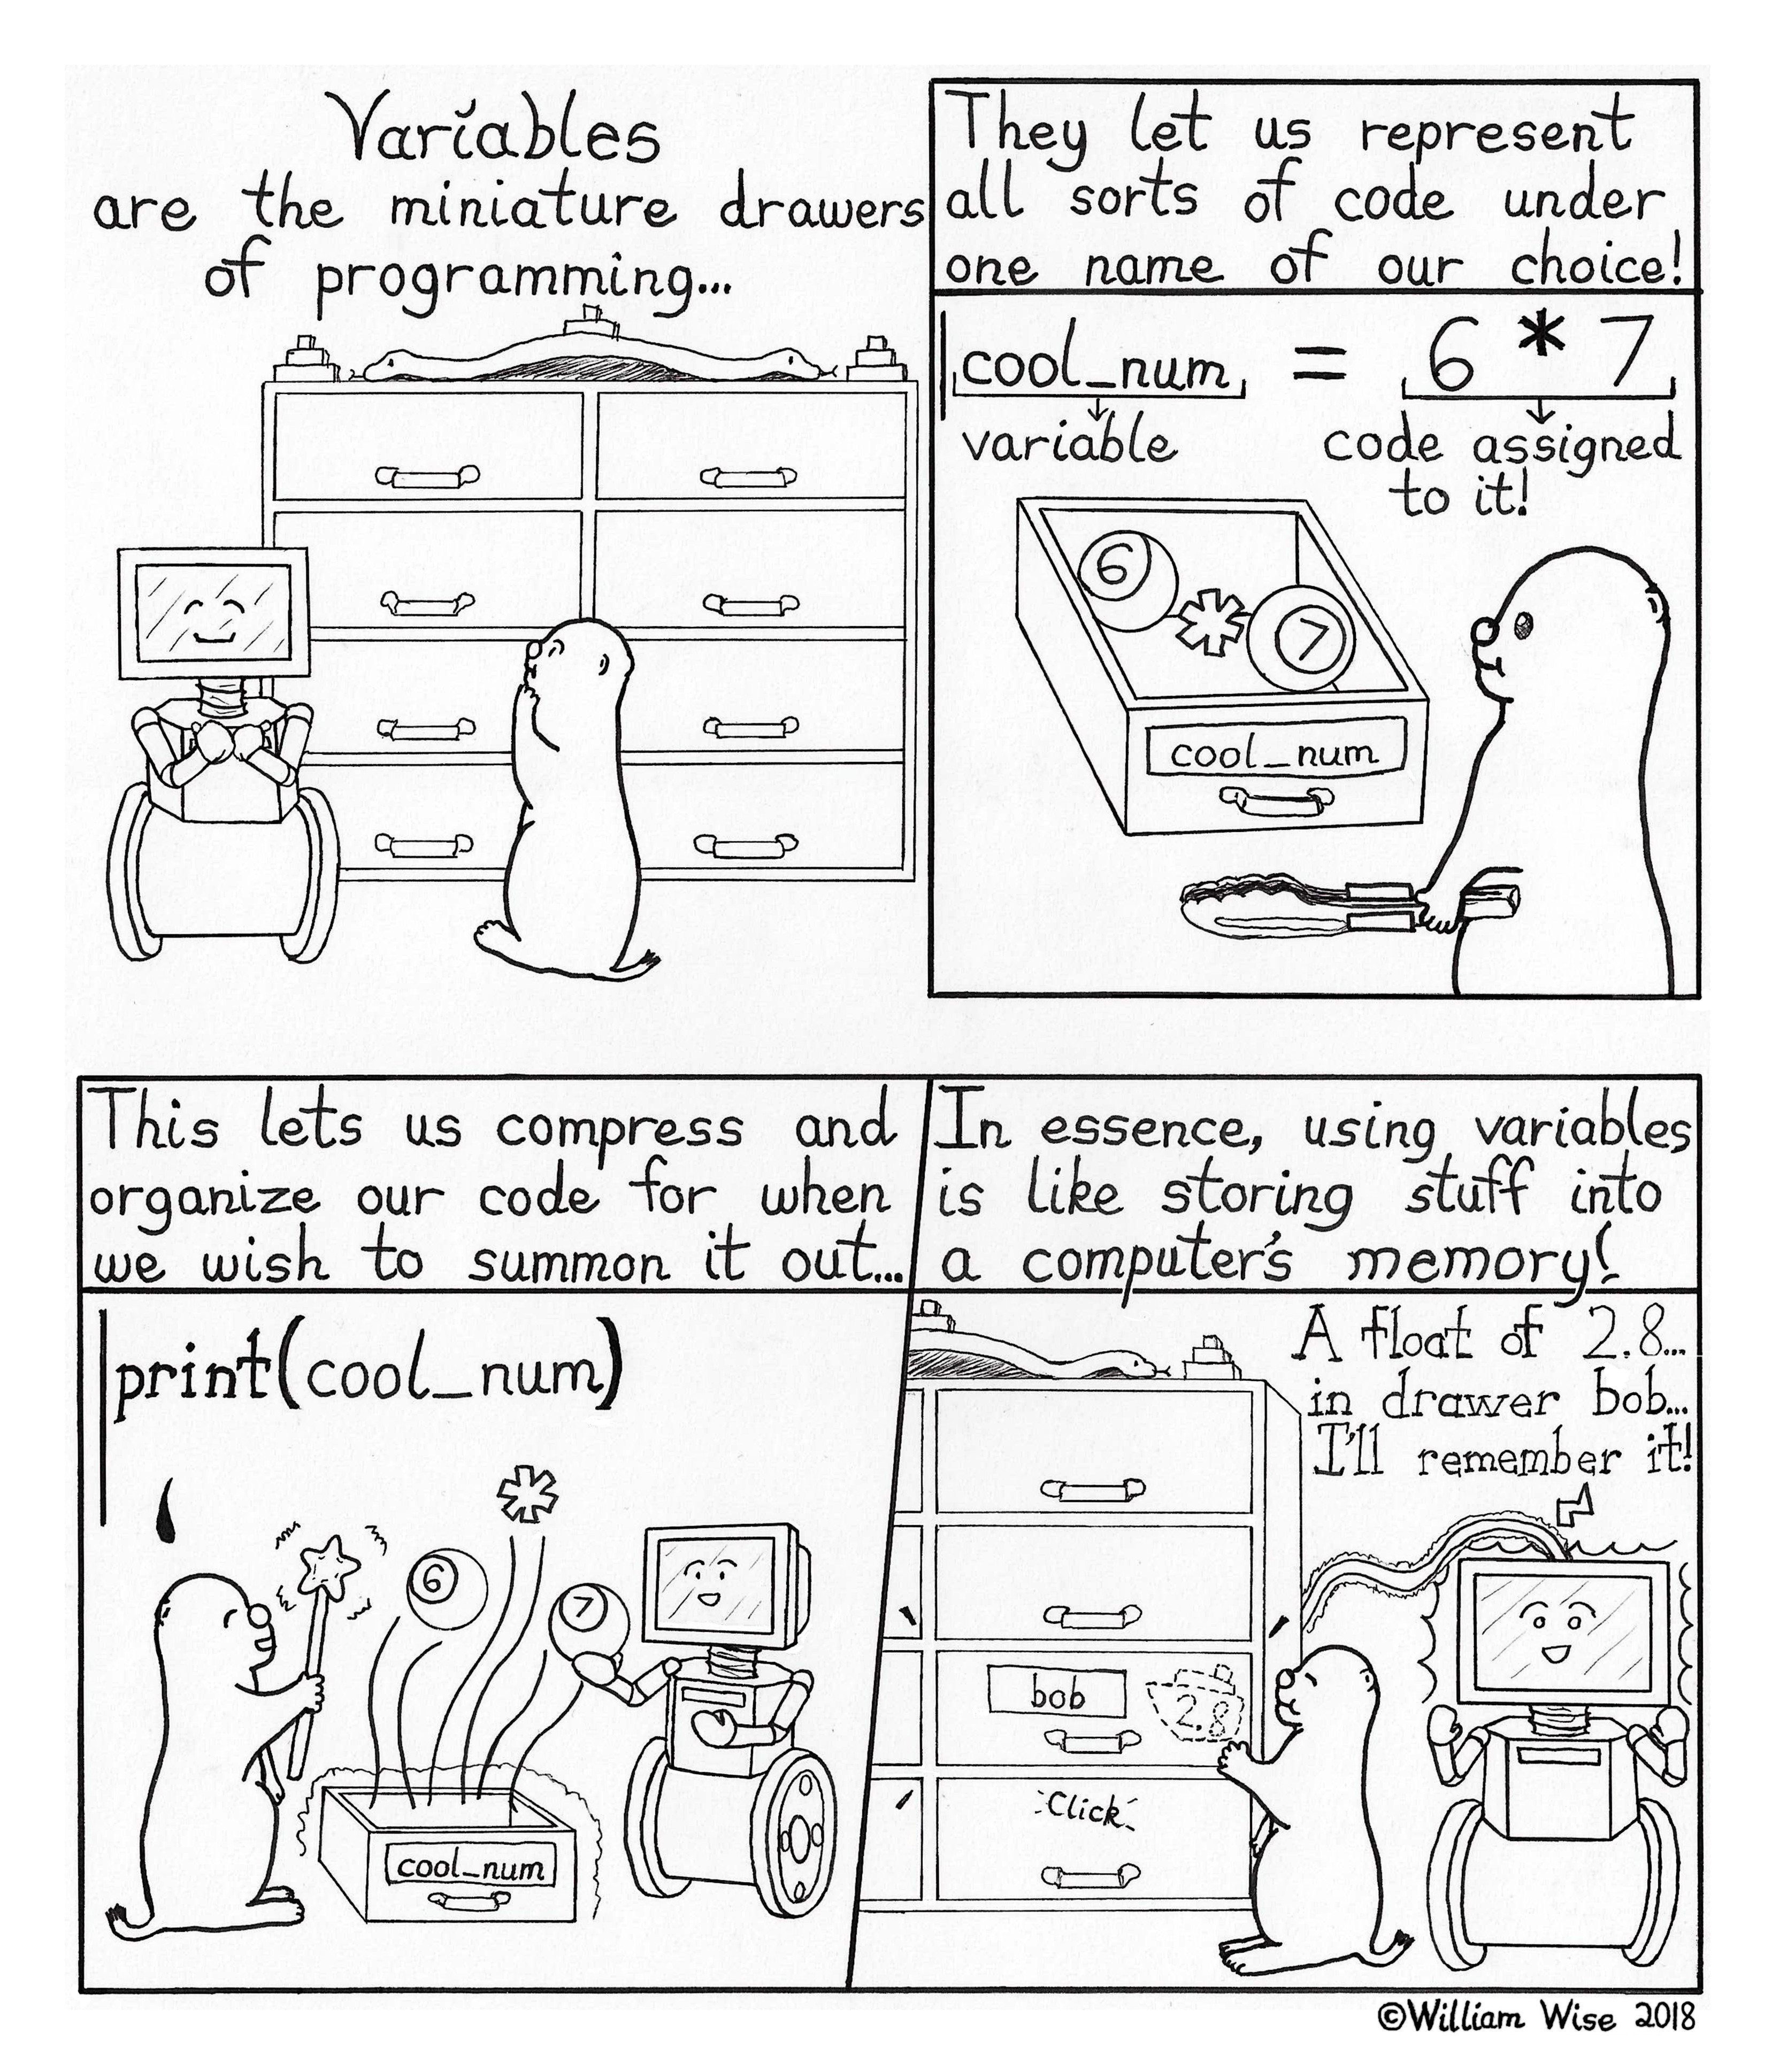 Variables
are the miniature drawers
of programming...
They let us represent
all sorts of code under
one name of our choice!
cool_num = 6 * 7
variable
code assigned
to it!
6 * 7
cool_num
This lets us compress and
organize our code for when
we wish to summon it out...
print(cool_num)
6 * 7
cool_num
In essence, using variables
is like storing stuff into
a computer's memory!
A float of 2.8...
in drawer bob...
I'll remember it!
bob
2.8
Click
©William Wise 2018